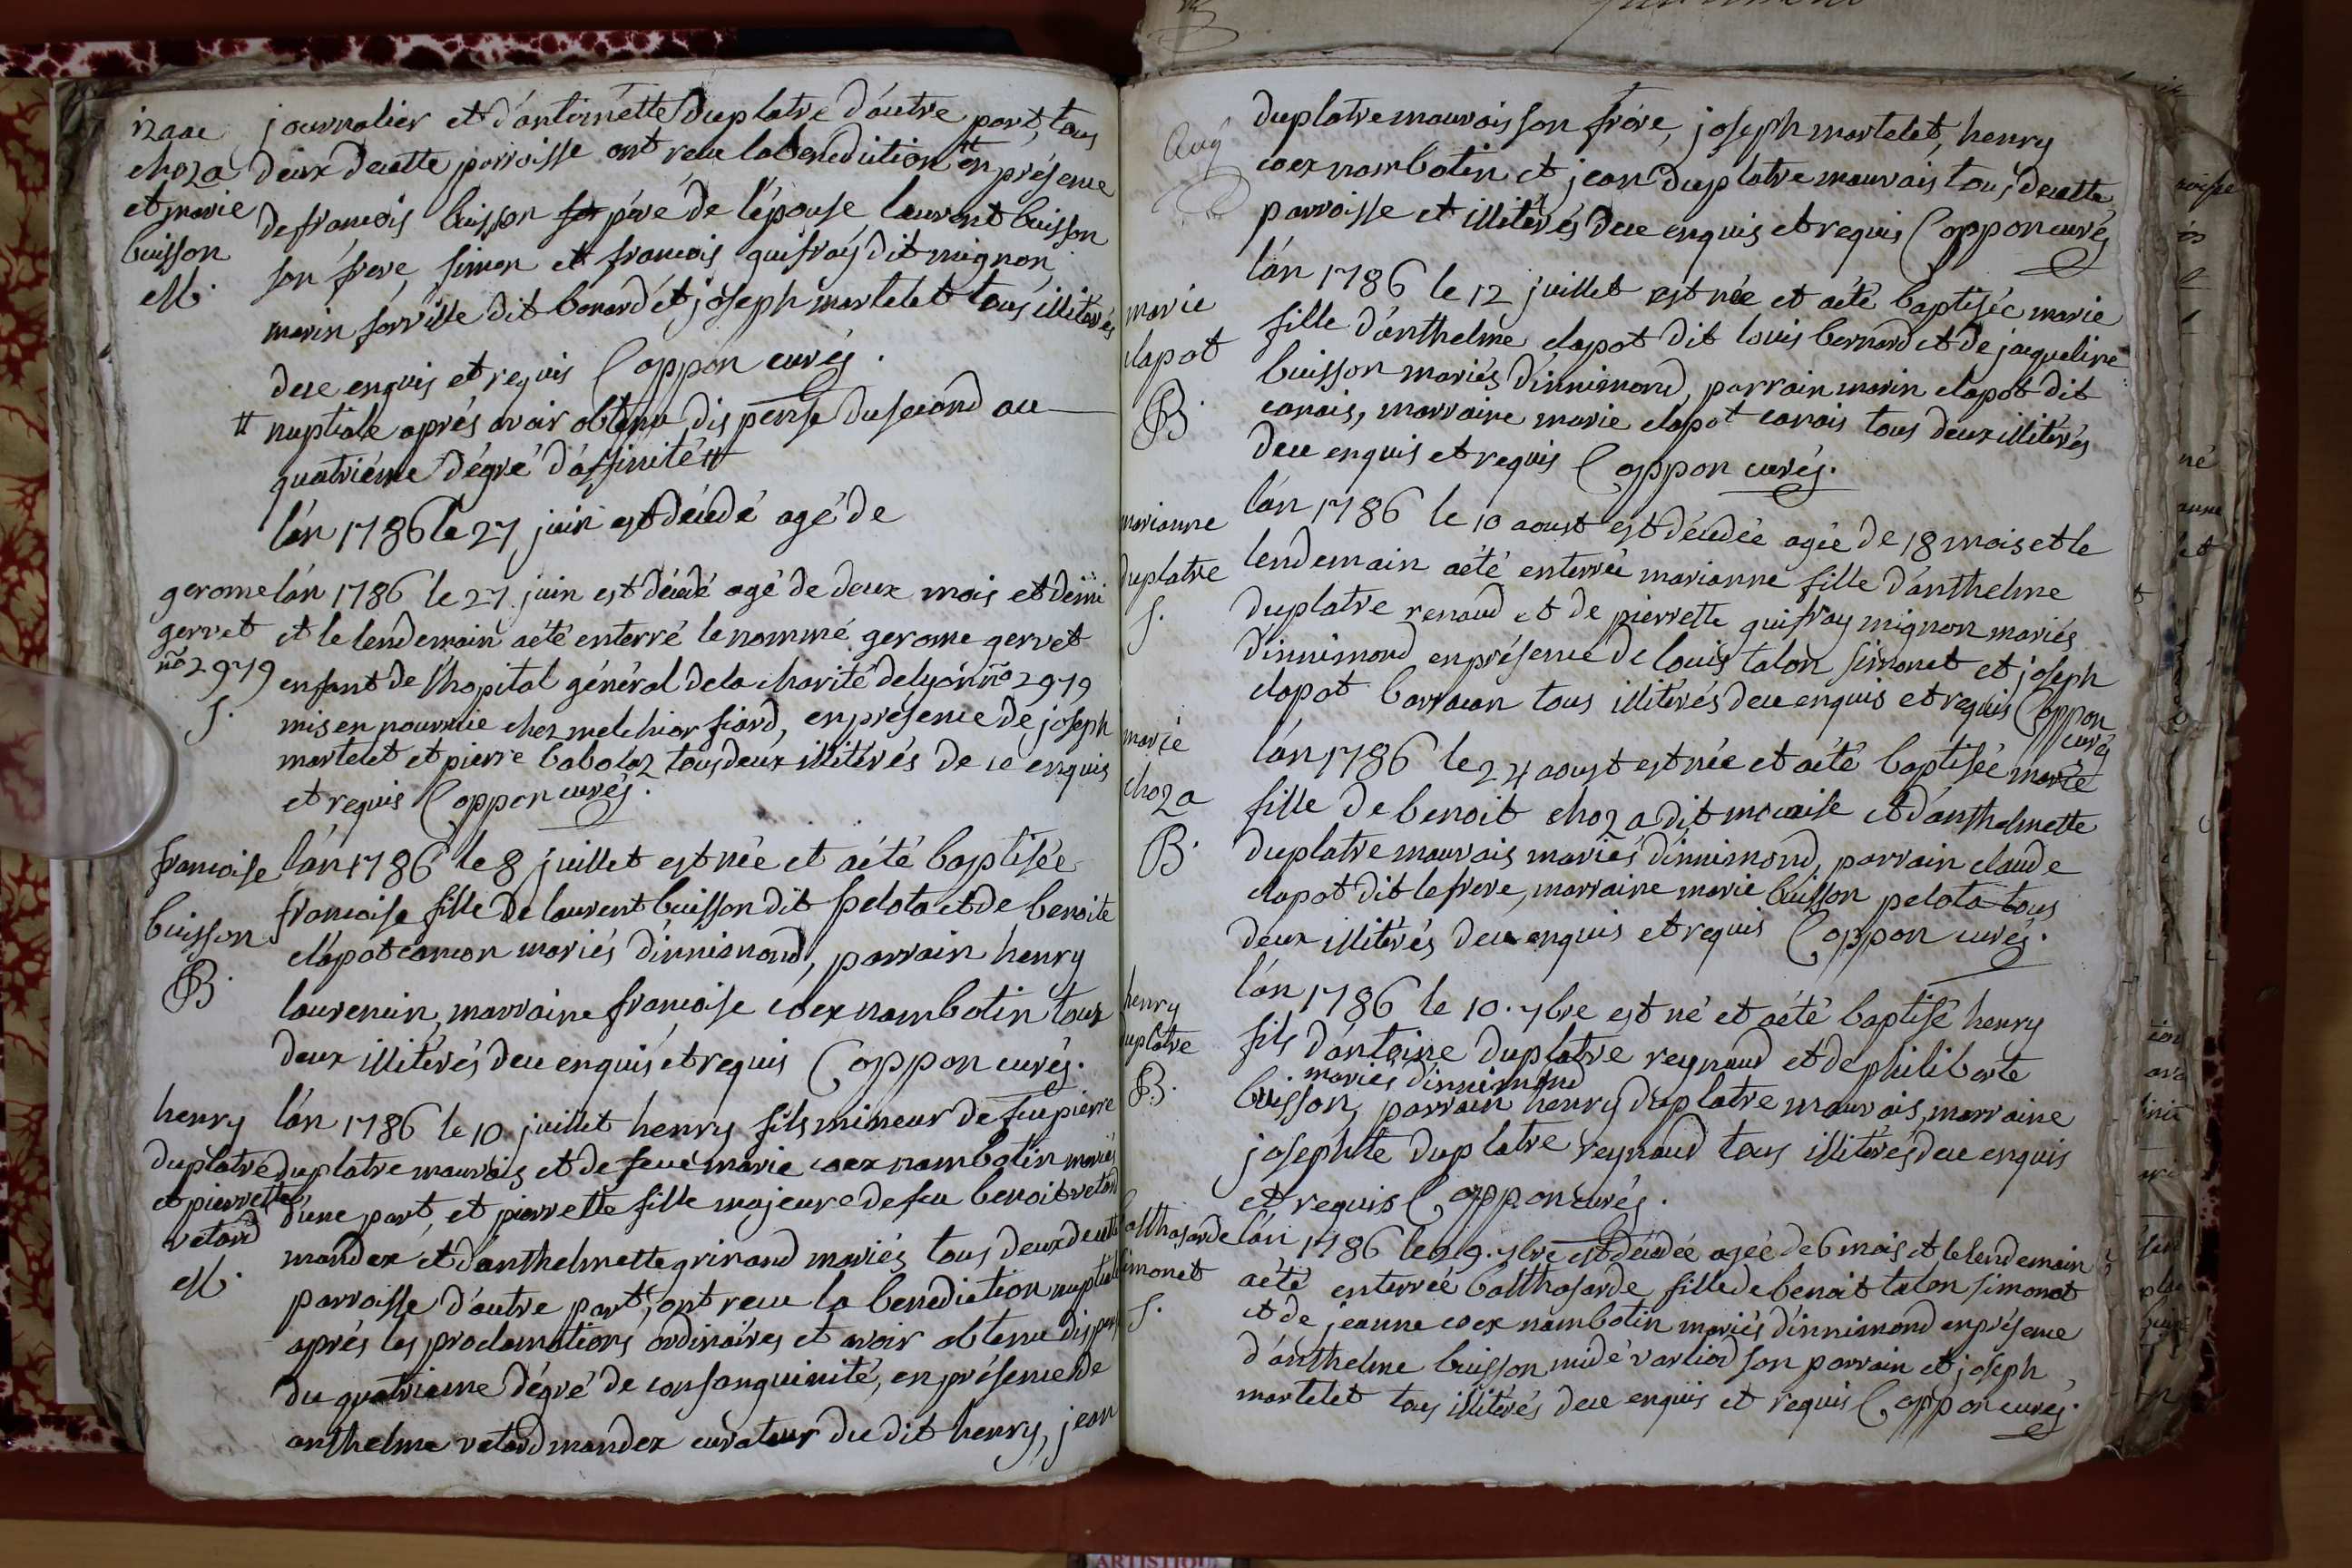 izaac
choza
et marie
buisson
M.
journalier et d'antoinette duplatre d'autre part, tous
deux decette parroisse ont recue la benediction # en présence
de francois buisson père de l'épouse laurent buisson
son frere, simon et francois guifray dit mignon
marin sorville dit bonard et joseph martelet tous illitérés
dece enquis et requis Coppon curés.
# nuptiale aprés avoir obtenu dispense du second au
quatriéme dégré d'affinité #
l'án 1786 le 27 juin est décédé agé de
gerome
gervet
no 2979
S.
l'án 1786 le 27 juin est décédé agé de deux mois et demi
et le lendemain aété enterré le nommé gerome gervet
enfant de l'hopital général dela charité delyon no 2979
mis en nourrice chez melchior fiard, enpresence de joseph
martelet et pierre babolaz tous deux illitérés de ce enquis
et requis Coppon curés.
francoise
buisson
B.
l'án 1786 le 8 juillet est née et aété baptisée
francoise fille de laurent buisson dit pelota et de benoite
clapot camon mariés d'innimond, parrain henry
laurencin, marraine francoise coex nambotin tous
deux illitérés dece enquis et requis Coppon curés.
henry
duplatre
et pierrette
vetard
M.
l'án 1786 le 10 juillet henry fils mineur de feu pierre
duplatre mauvais et de feue marie coex nambotin mariés
d'une part, et pierrette fille majeure de feu benoit vetard
mandex et d'anthelmette grinand mariés tous deux decette
parroisse d'autre part, ont recue la benediction nuptiale
aprés les proclamations ordinaires et avoir obtenu dispense
du quatrieme dégré de consanguinité, en présence de
anthelme vetard mandex curateur du dit henry, jean
duplatre mauvais son frére, joseph martelet, henry
coex nambotin et jean duplatre mauvais tous decette
parroisse et illitérés dece enquis et requis Coppon curés
marie
clapot
B.
l'án 1786 le 12 juillet est née et aété baptisée marie
fille d'anthelme clapot dit louis bernard et de jacqueline
buisson mariés d'innimond, parrain marin clapot dit
canais, marraine marie clapot canais tous deux illitérés
dece enquis et requis Coppon curés.
marianne
duplatre
S.
l'án 1786 le 10 aoust est décédée agée de 18 mois et le
lendemain aété enterrée marianne fille d'anthelme
duplatre renaud et de pierrette guifray mignon mariés
d'innimond enprésence de louis talon simonet et joseph
clapot barracan tous illitérés dece enquis et requis Coppon
curés
marie
choza
B.
l'án 1786 le 24 aoust est née et aété baptisée marie
fille de benoit choza dit et d'anthelmette
duplatre mauvais mariés d'innimond, parrain claude
clapot dit lefrere, marraine marie buisson pelota tous
deux illitérés dece enquis et requis Coppon curés.
henry
duplatre
B.
l'án 1786 le 10. 7bre est né et aété baptisé henry
fils d'antoine duplatre reynaud et de philiberte
mariés d'innimond
buisson, parrain henry duplatre mauvais, marraine
josephte duplatre reynaud tous illitérés dece enquis
et requis Coppon curés.
balthasarde
simonet
S.
l'án 1786 le 29. 7bre est décédée agée de 6 mois et le lendemain
aété enterrée balthasarde fille de benoit talon simonet
et de jeanne coex nambotin mariés d'innimond enprésence
d'anthelme buisson midé varliod son parrain et joseph
martelet tous illitérés dece enquis et requis Coppon curés.